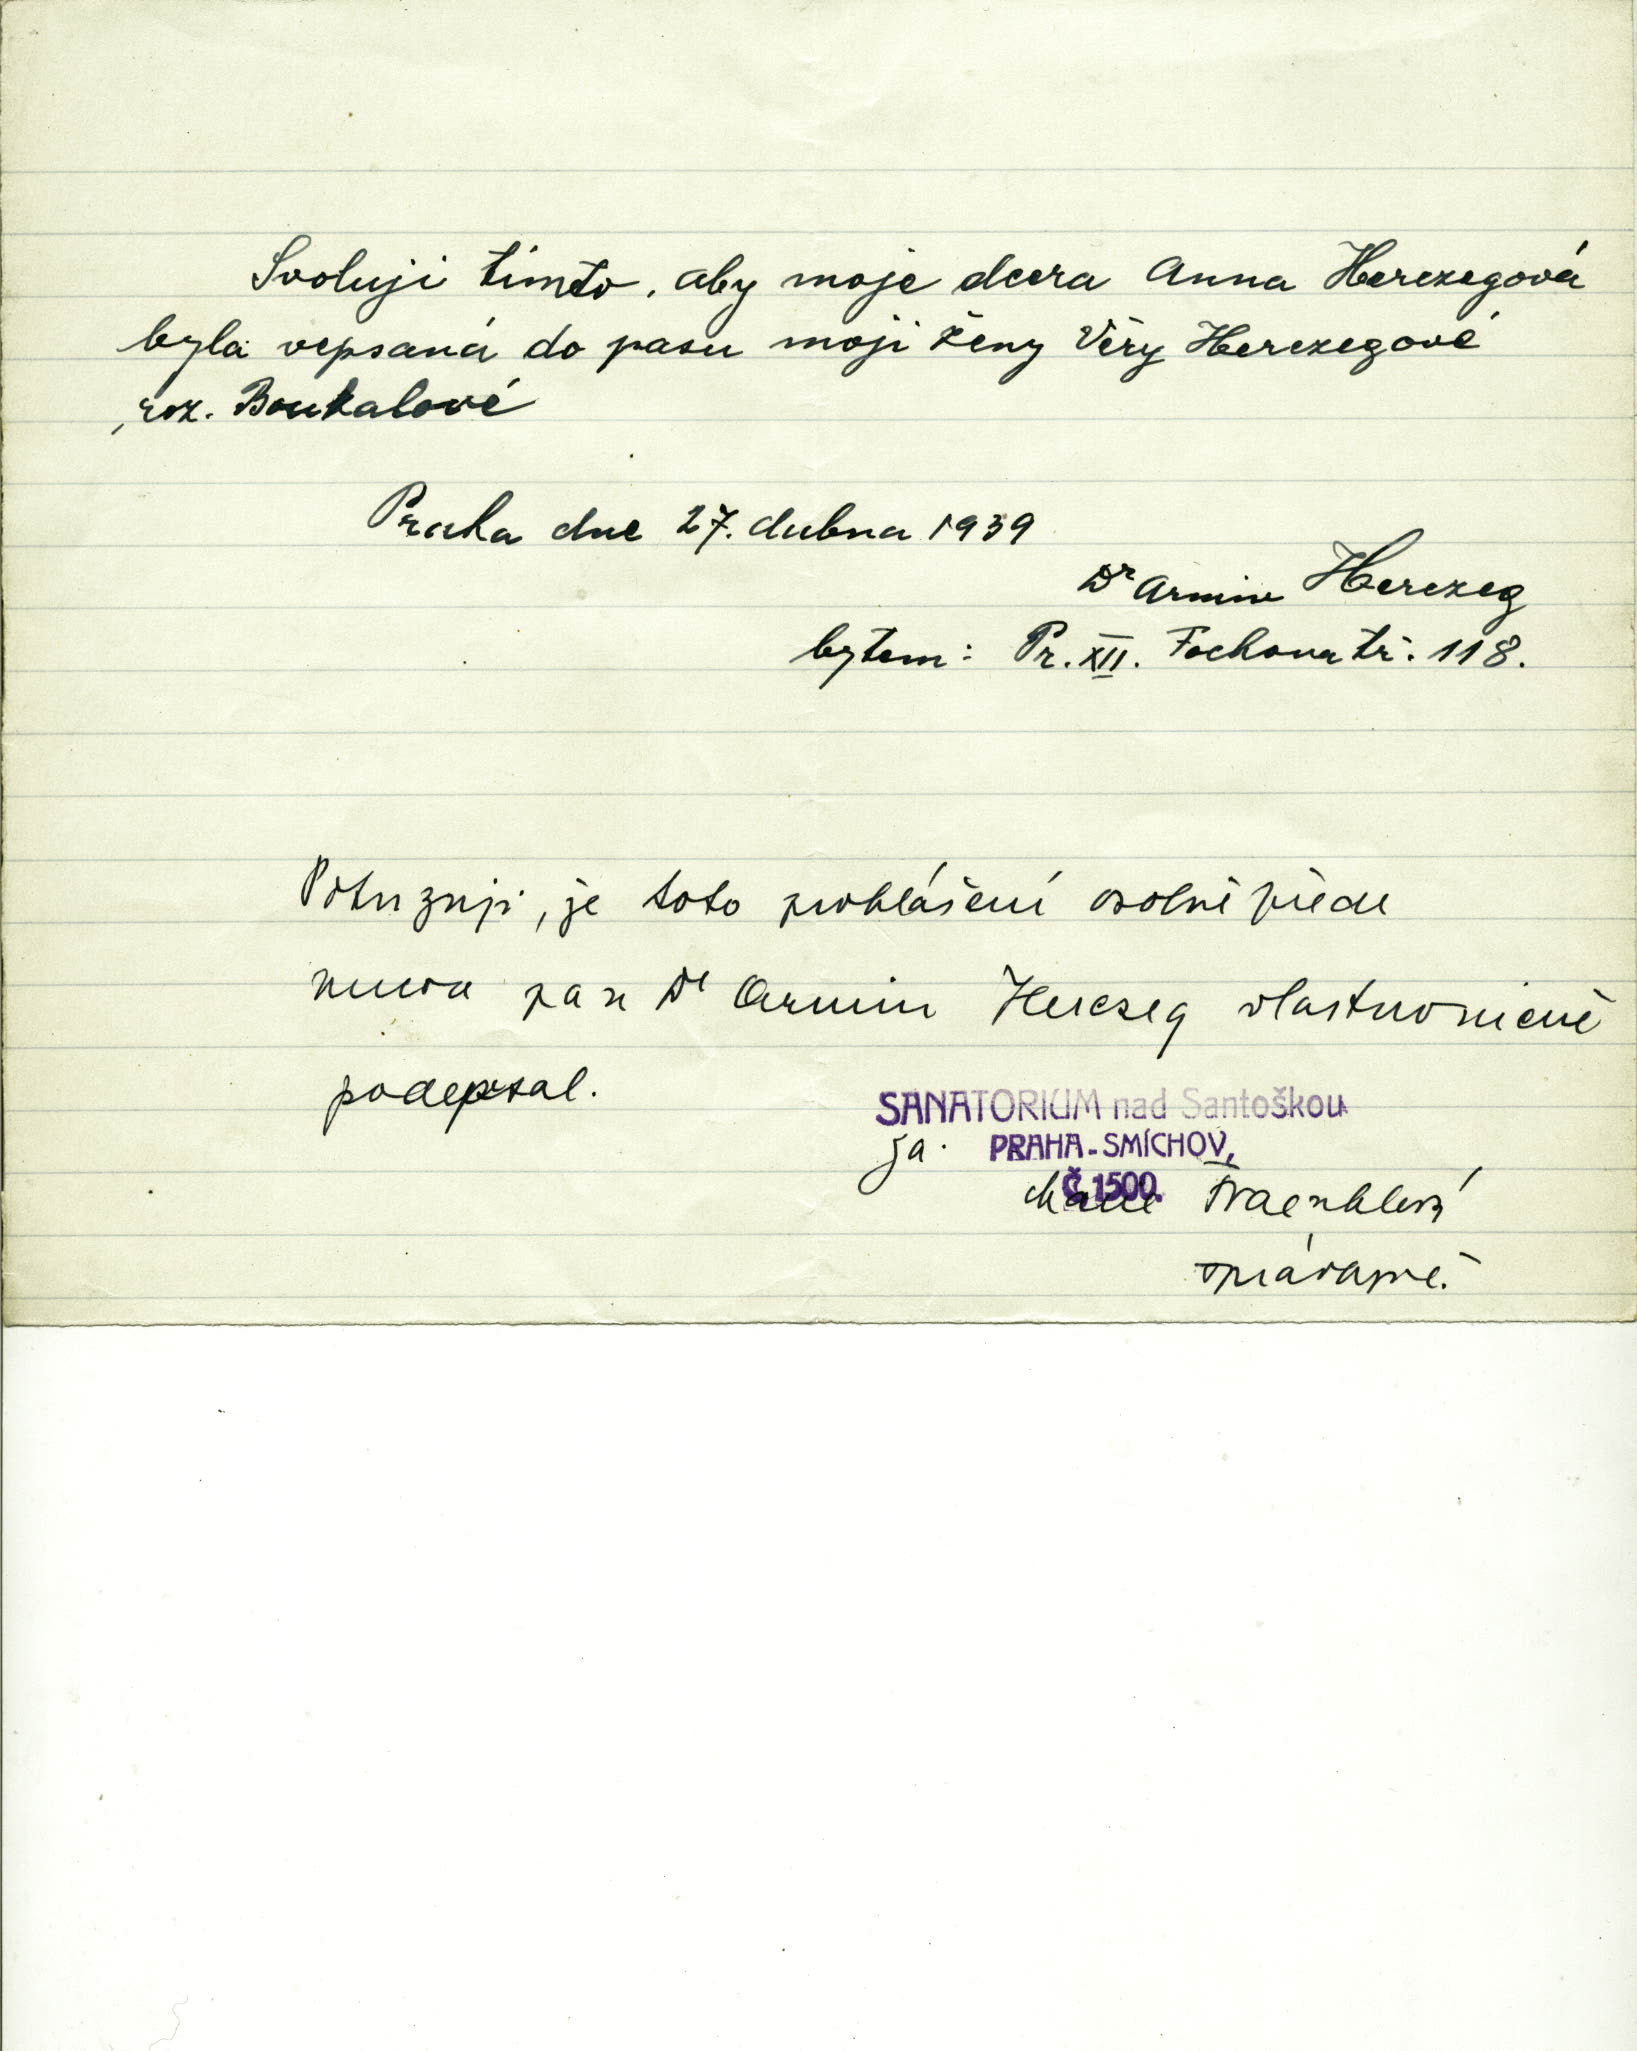 Svoluji tímto, aby moje dcera Anna Herczegová
byla vepsaná do pasu moji ženy Věry Herczegové
roz. Boukalové
Praha dne 27. dubna 1939
Dr Armin Herczeg
bytem: Pr. XII. Fochova tř. 118.
Potvrzuji, že toto prohlášení osobně přede
mnou pan Dr Armin Herczeg vlastnoručně
podepsal.
SANATORIUM nad Santoškou
za. PRAHA-SMÍCHOV,
Č. 1500.
Marie
správkyně.